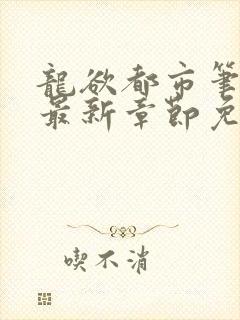 龍欲都市筆
最新章節免
喫不消